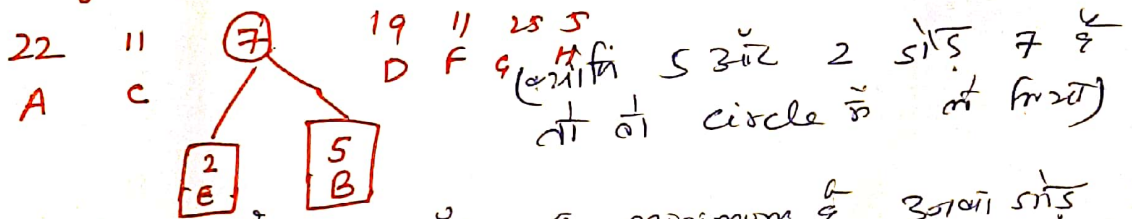 22 11 7 19 11 25 5
A C D F G H (क्योंकि 5 और 2 जोड़ 7 है
तो वो circle में ले लिया)
2 5
E B
है उनका जोड़